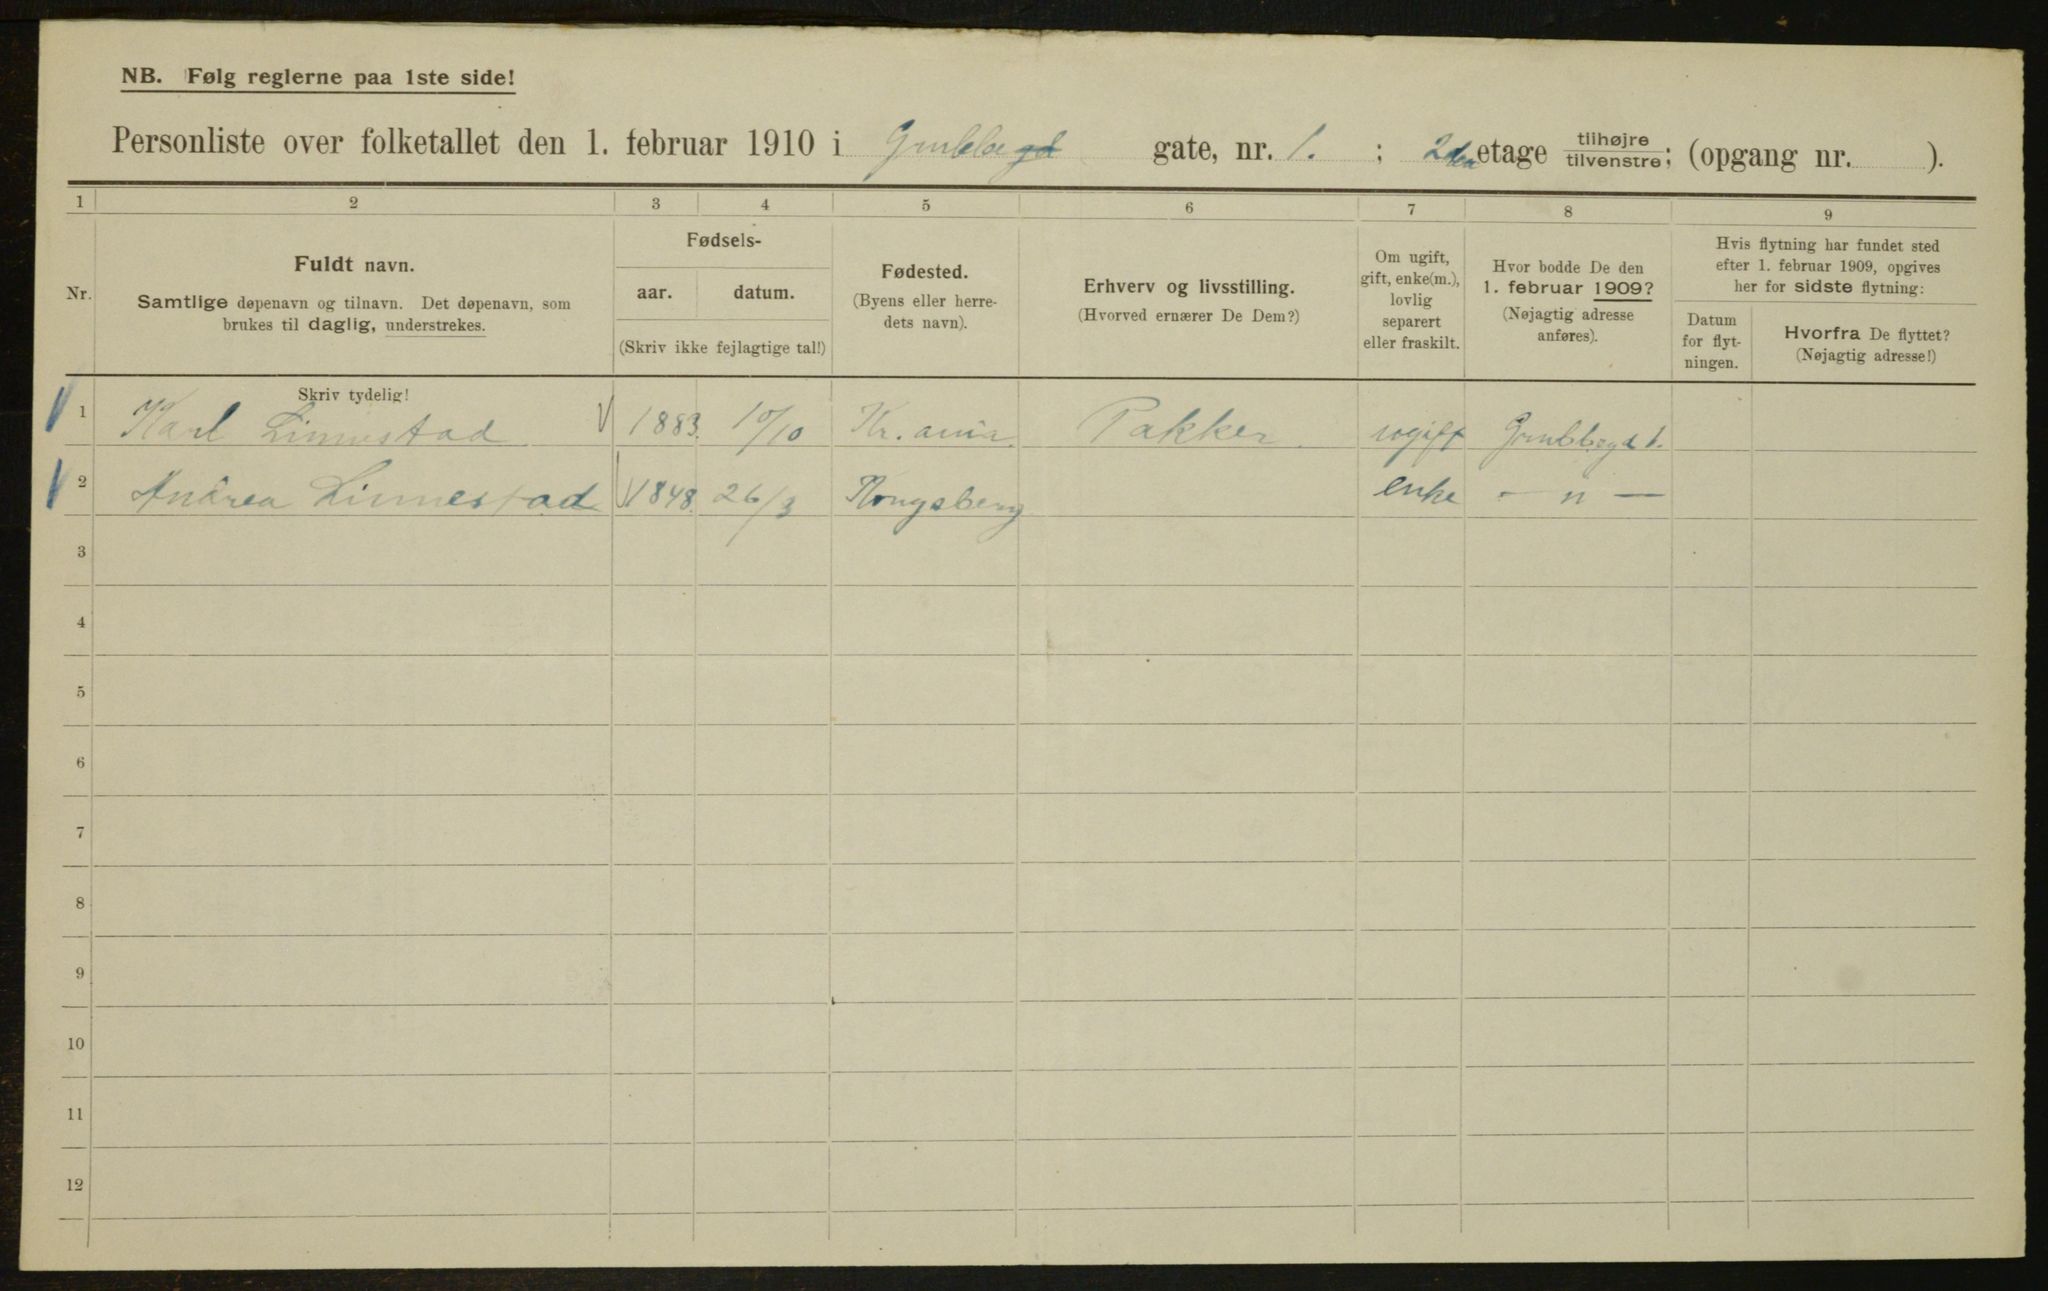 NB. Følg reglerne paa 1ste side!
Personliste over folketallet den 1. februar 1910 i Grubbegd gate, nr. 1. ; 2den etage tilhøjre tilvenstre; (opgang nr. ).
1 2 3 4 5 6 7 8 9
Nr.
Fuldt navn.
Samtlige døpenavn og tilnavn. Det døpenavn, som
brukes til daglig, understrekes.
Fødsels-
aar. datum.
(Skriv ikke fejlagtige tal!)
Fødested.
(Byens eller herre-
dets navn).
Erhverv og livsstilling.
(Hvorved ernærer De Dem?)
Om ugift,
gift, enke(m.),
lovlig
separert
eller fraskilt.
Hvor bodde De den
1. februar 1909?
(Nøjagtig adresse
anføres).
Hvis flytning har fundet sted
efter 1. februar 1909, opgives
her for sidste flytning:
Datum
for flyt-
ningen.
Hvorfra De flyttet?
(Nøjagtig adresse!)
Skriv tydelig!
1 Karl Linnestad 1883. 10/10 Kr.ania. Pakker. ugift Grubbegd 1.
2 Andrea Linnestad 1848. 26/3 Kongsberg enke - " -
3
4
5
6
7
8
9
10
11
12